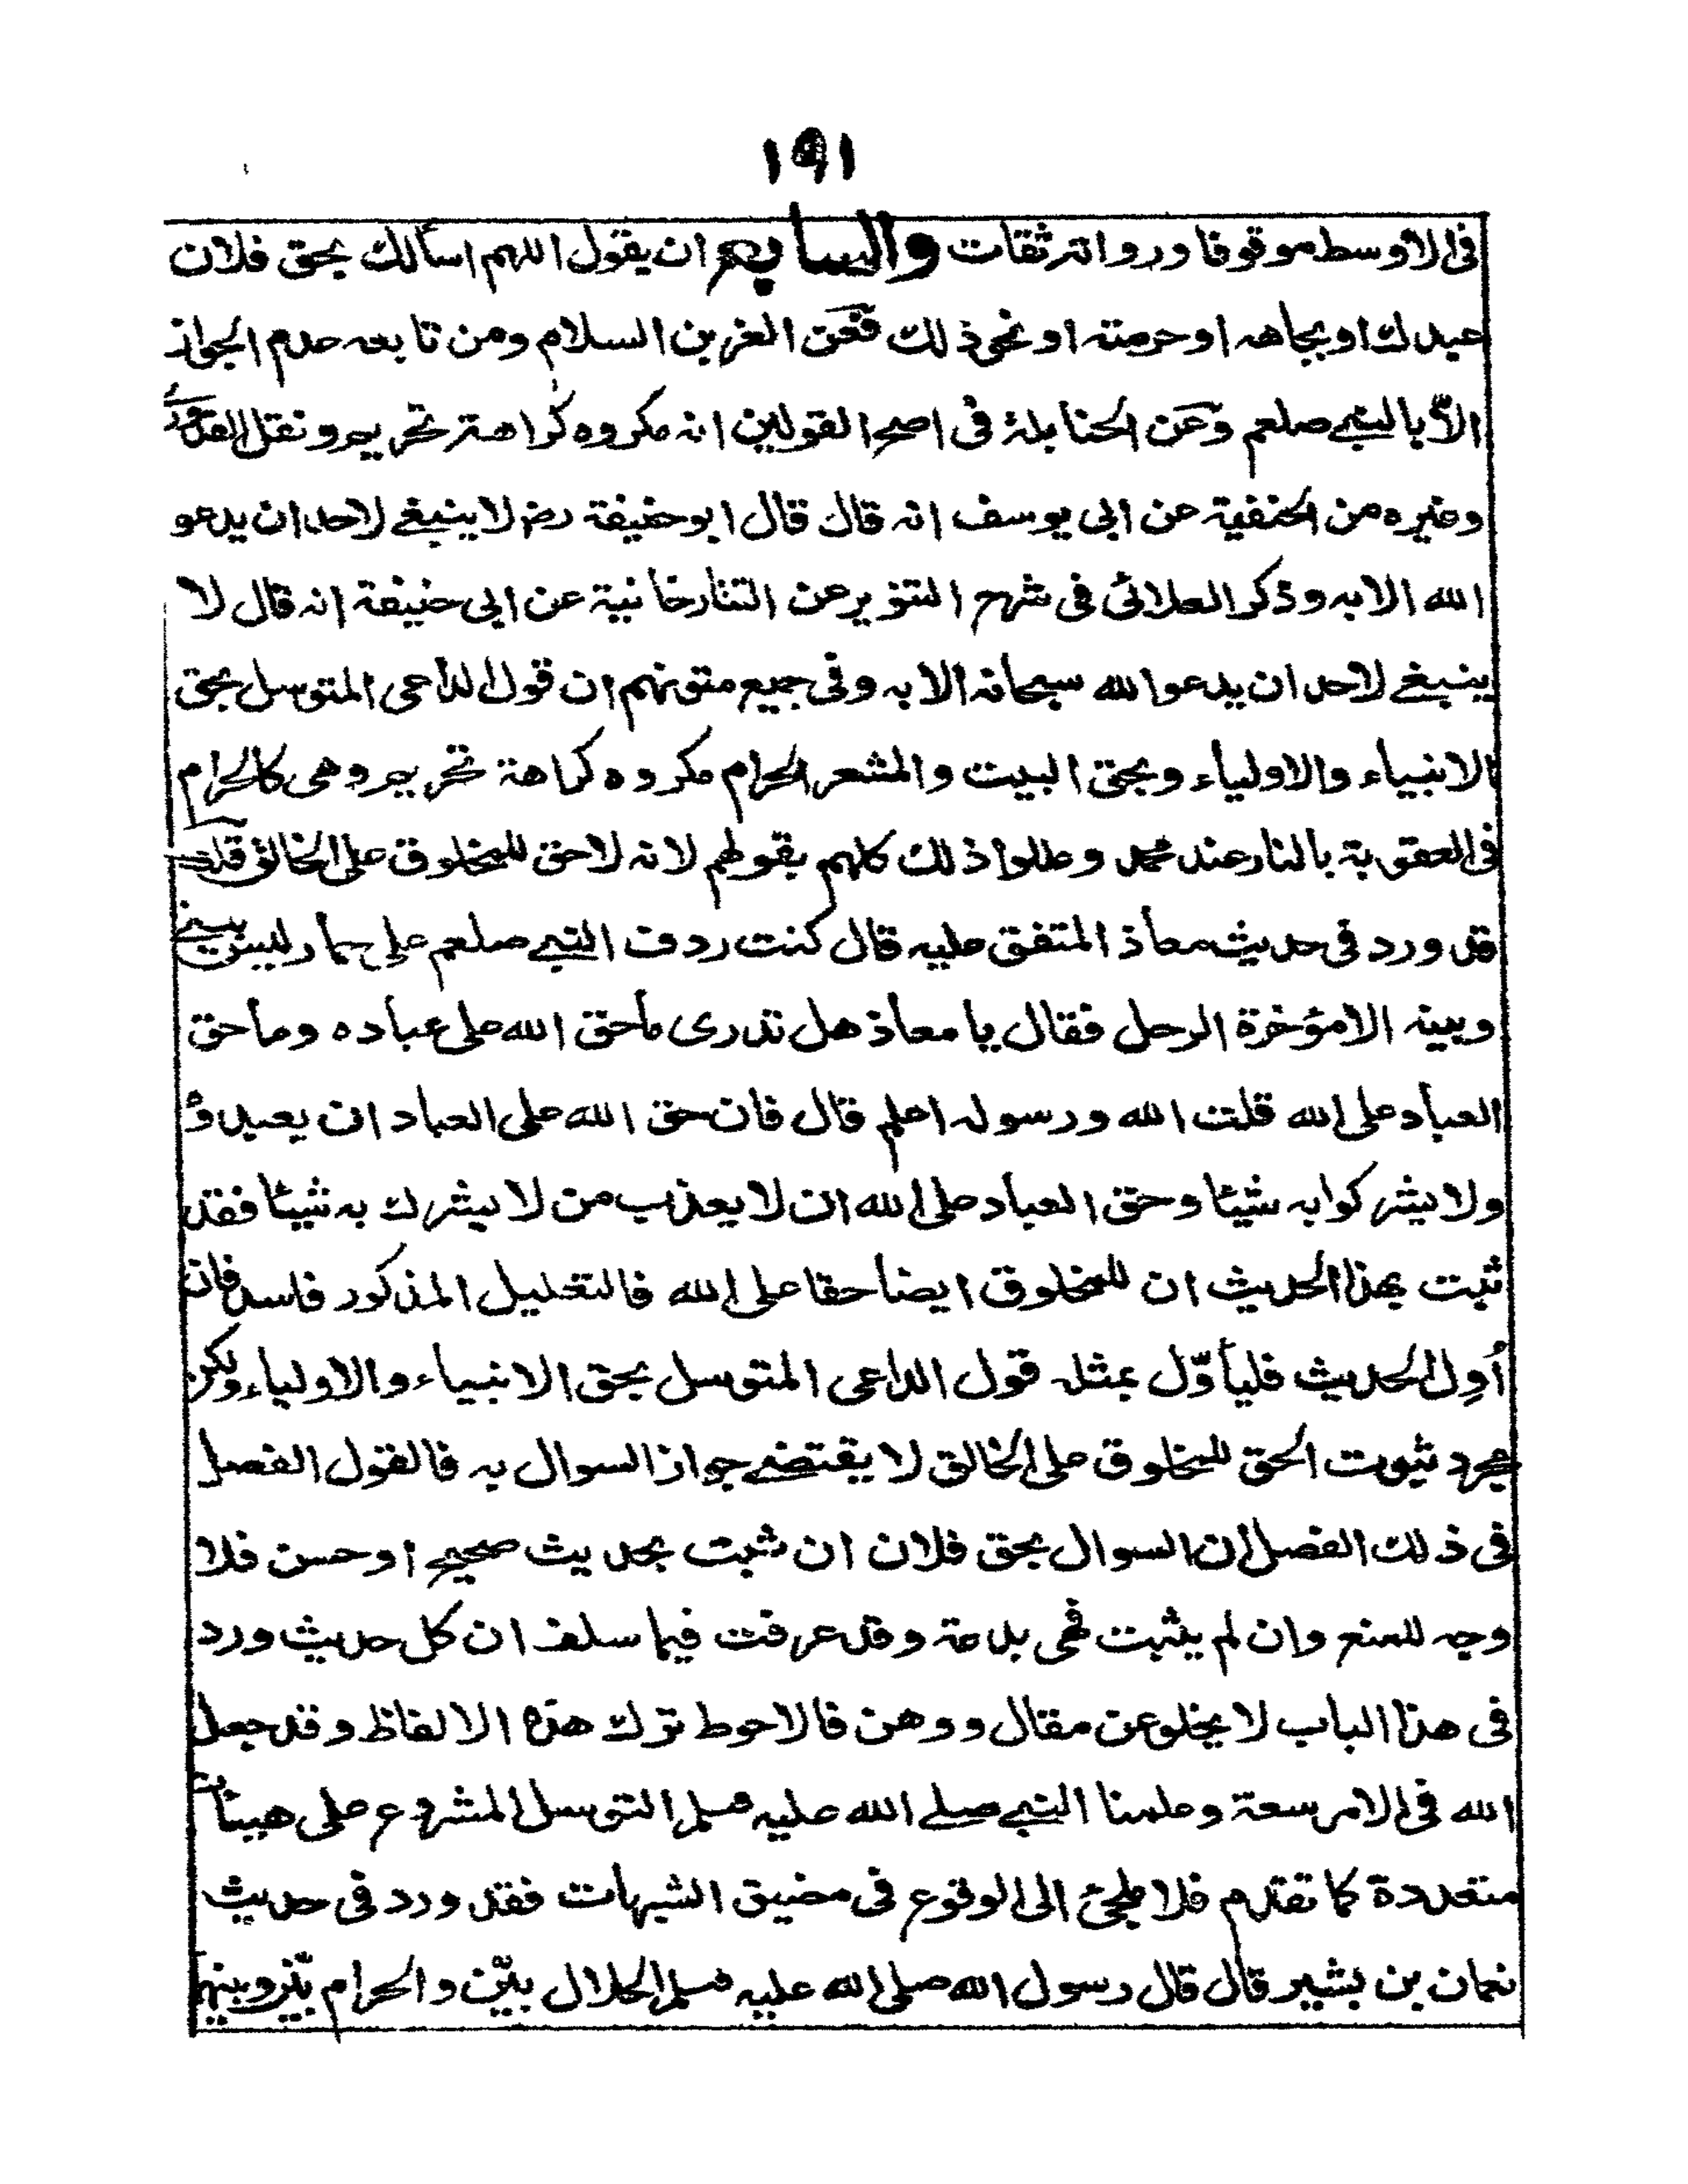 ١٩١
فى الاوسط موقوفا ورواته ثقات والسابع ان يقول اللهم اسألك بحق فلان
عبدك او بجاهه او حرمته او نحو ذلك فعن العز بن السلام ومن تابعه عدم الجواز
الّا بالنبي صلعم وعن الحنابلة فى اصح القولين انه مكروه كراهة تحريم ونقل القدورى
وغيره من الحنفية عن ابى يوسف انه قال قال ابو حنيفة رض لا ينبغي لاحد ان يدعو
الله الا به وذكر العلائى فى شرح التنوير عن التتارخانية عن ابى حنيفة انه قال لا
ينبغي لاحد ان يدعو الله سبحانه الا به وفى جميع متونهم ان قول الداعى المتوسل بحق
الانبياء والاولياء وبحق البيت والمشعر الحرام مكروه كراهة تحريم وهى كالحرام
فى العقوبة بالنار عند محمد وعللوا ذلك كلهم بقولهم لانه لا حق للمخلوق على الخالق قلت
قد ورد فى حديث معاذ المتفق عليه قال كنت ردف النبي صلعم على حمار ليس بيني
وبينه الا مؤخرة الرحل فقال يا معاذ هل تدرى ما حق الله على عباده وما حق
العباد على الله قلت الله ورسوله اعلم قال فان حق الله على العباد ان يعبدوه
ولا يشركوا به شيئا وحق العباد على الله ان لا يعذب من لا يشرك به شيئا فقد
ثبت بهذا الحديث ان للمخلوق ايضا حقا على الله فالتعليل المذكور فاسد فان
اُوِل الحديث فليأوّل بمثله قول الداعى المتوسل بحق الانبياء والاولياء ولكن
مجرد ثبوت الحق للمخلوق على الخالق لا يقتضي جواز السوال به فالقول الفصل
فى ذلك الفصل ان السوال بحق فلان ان ثبت بحديث صحيح او حسن فلا
وجه للمنع وان لم يثبت فهى بدعة وقد عرفت فيما سلف ان كل حديث ورد
فى هذا الباب لا يخلو عن مقال ووهن فالاحوط ترك هذه الالفاظ وقد جعل
الله فى الامر سعة وعلمنا النبي صلى الله عليه وسلم التوسل المشروع على هيئات
متعددة كما تقدم فلا ملجئ الى الوقوع فى مضيق الشبهات فقد ورد فى حديث
نعمان بن بشير قال قال رسول الله صلى الله عليه وسلم الحلال بيّن والحرام بيّن وبينهما